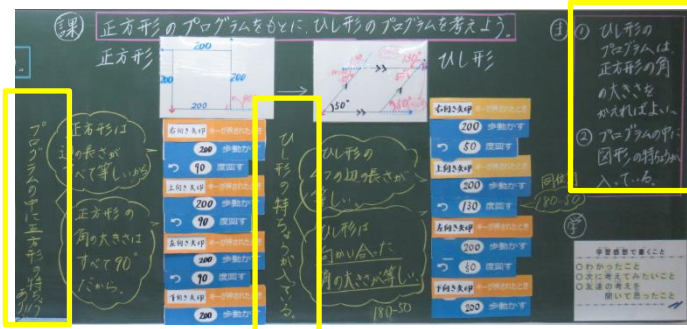 課 正方形のプログラムをもとに、ひし形のプログラムを考えよう。
正方形
200
200
200
200
ひし形
50°
プログラムの中に正方形の特ちょうがあり
正方形は
辺の長さが
すべて等しいから
正方形の
角の大きさは
すべて90°
だから。
右向き矢印 キーが押されたとき
200 歩動かす
90 度回す
上向き矢印 キーが押されたとき
200 歩動かす
90 度回す
左向き矢印 キーが押されたとき
200 歩動かす
90 度回す
下向き矢印 キーが押されたとき
200 歩動かす
ひし形の特ちょうが入っている。
ひし形の
4つの辺の長さが
等しい
ひし形は
向かい合った
角の大きさが等しい。
180-50
右向き矢印 キーが押されたとき
200 歩動かす
50 度回す
上向き矢印 キーが押されたとき
200 歩動かす
130 度回す
左向き矢印 キーが押されたとき
200 歩動かす
50 度回す
下向き矢印 キーが押されたとき
200 歩動かす
180-50
ま
① ひし形の
プログラムは、
正方形の角
の大きさを
かえればよい。
② プログラムの中に
図形の特ちょうが
入っている。
学
学習感想で書くこと
○わかったこと
○次に考えてみたいこと
○友達の考えを
聞いて思ったこと